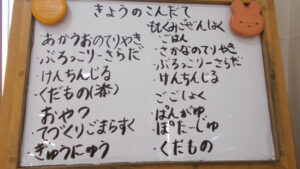 きょうのこんだて
・あかうおのてりやき
・ぶろっこりーさらだ
・けんちんじる
・くだもの
おやつ
・てづくりごまらすく
・ぎゅうにゅう
・ごはん
・さかなのてりやき
・ぶろっこーりーさらだ
・けんちんじる
ごごしょく
・ぱんがゆ
・ぽたーじゅ
・くだもの